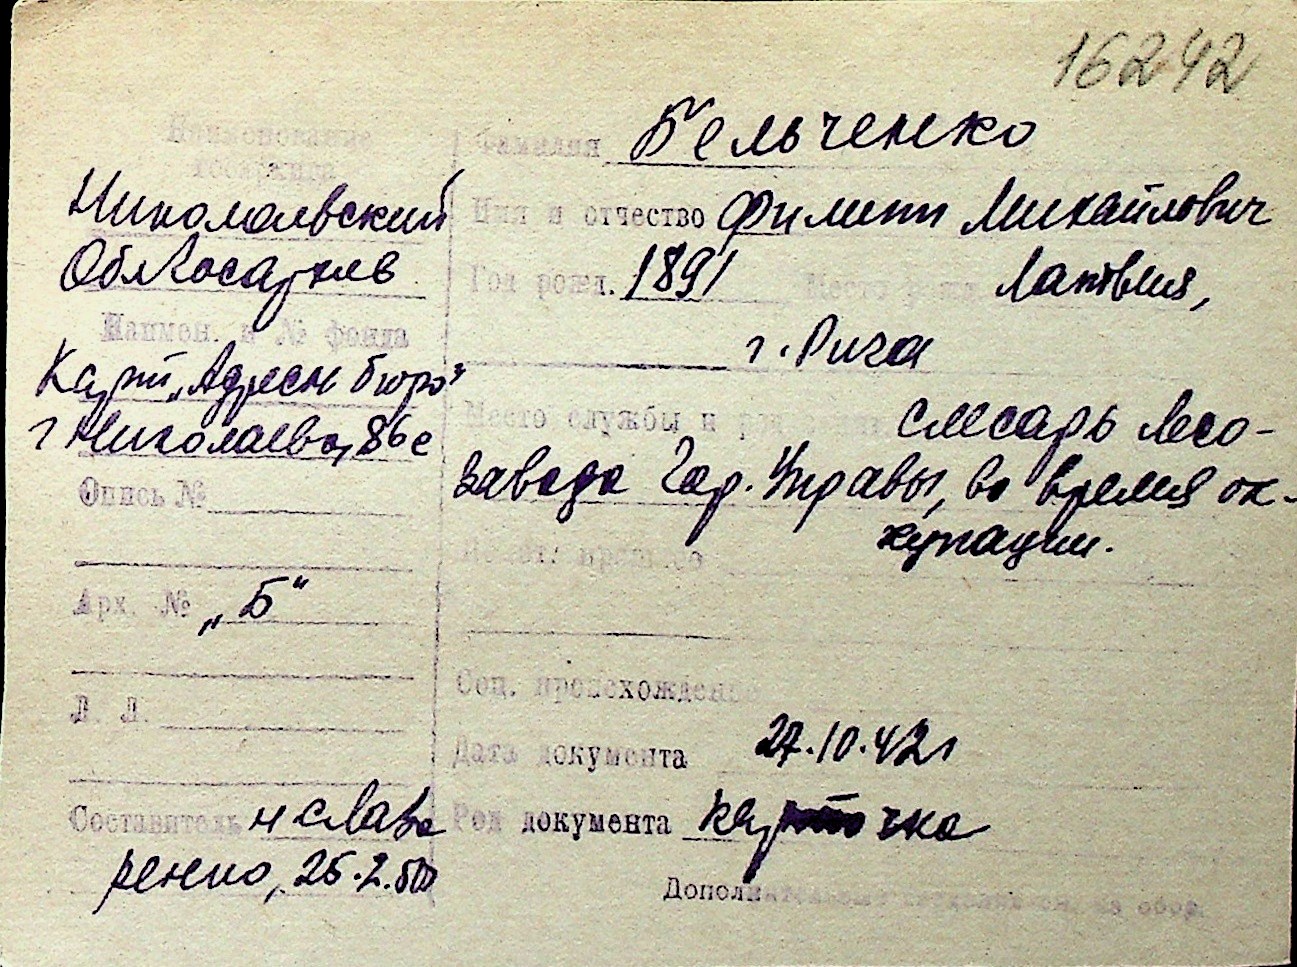 16242
Наименование
госархива
Николаевский
Облгосархив
Наимен. и № фонда
Карт. „Адресн бюро"
г Николаева, 86 с
Опись №
Арх. № „Б"
Л. Л.
Составитель
25.2.50
Фамилия Бельченко
Имя и отчество Филипп Михайлович
Год рожд. 1891 Место рожд. Латвия,
г. Рига
Место службы и род слесарь Лесо-
завода Гор. Управы, во время ок-
купации.
Соц. происхождение
Дата документа 27.10.42г
Род документа карточка
Дополнительные сведения см. на обор.